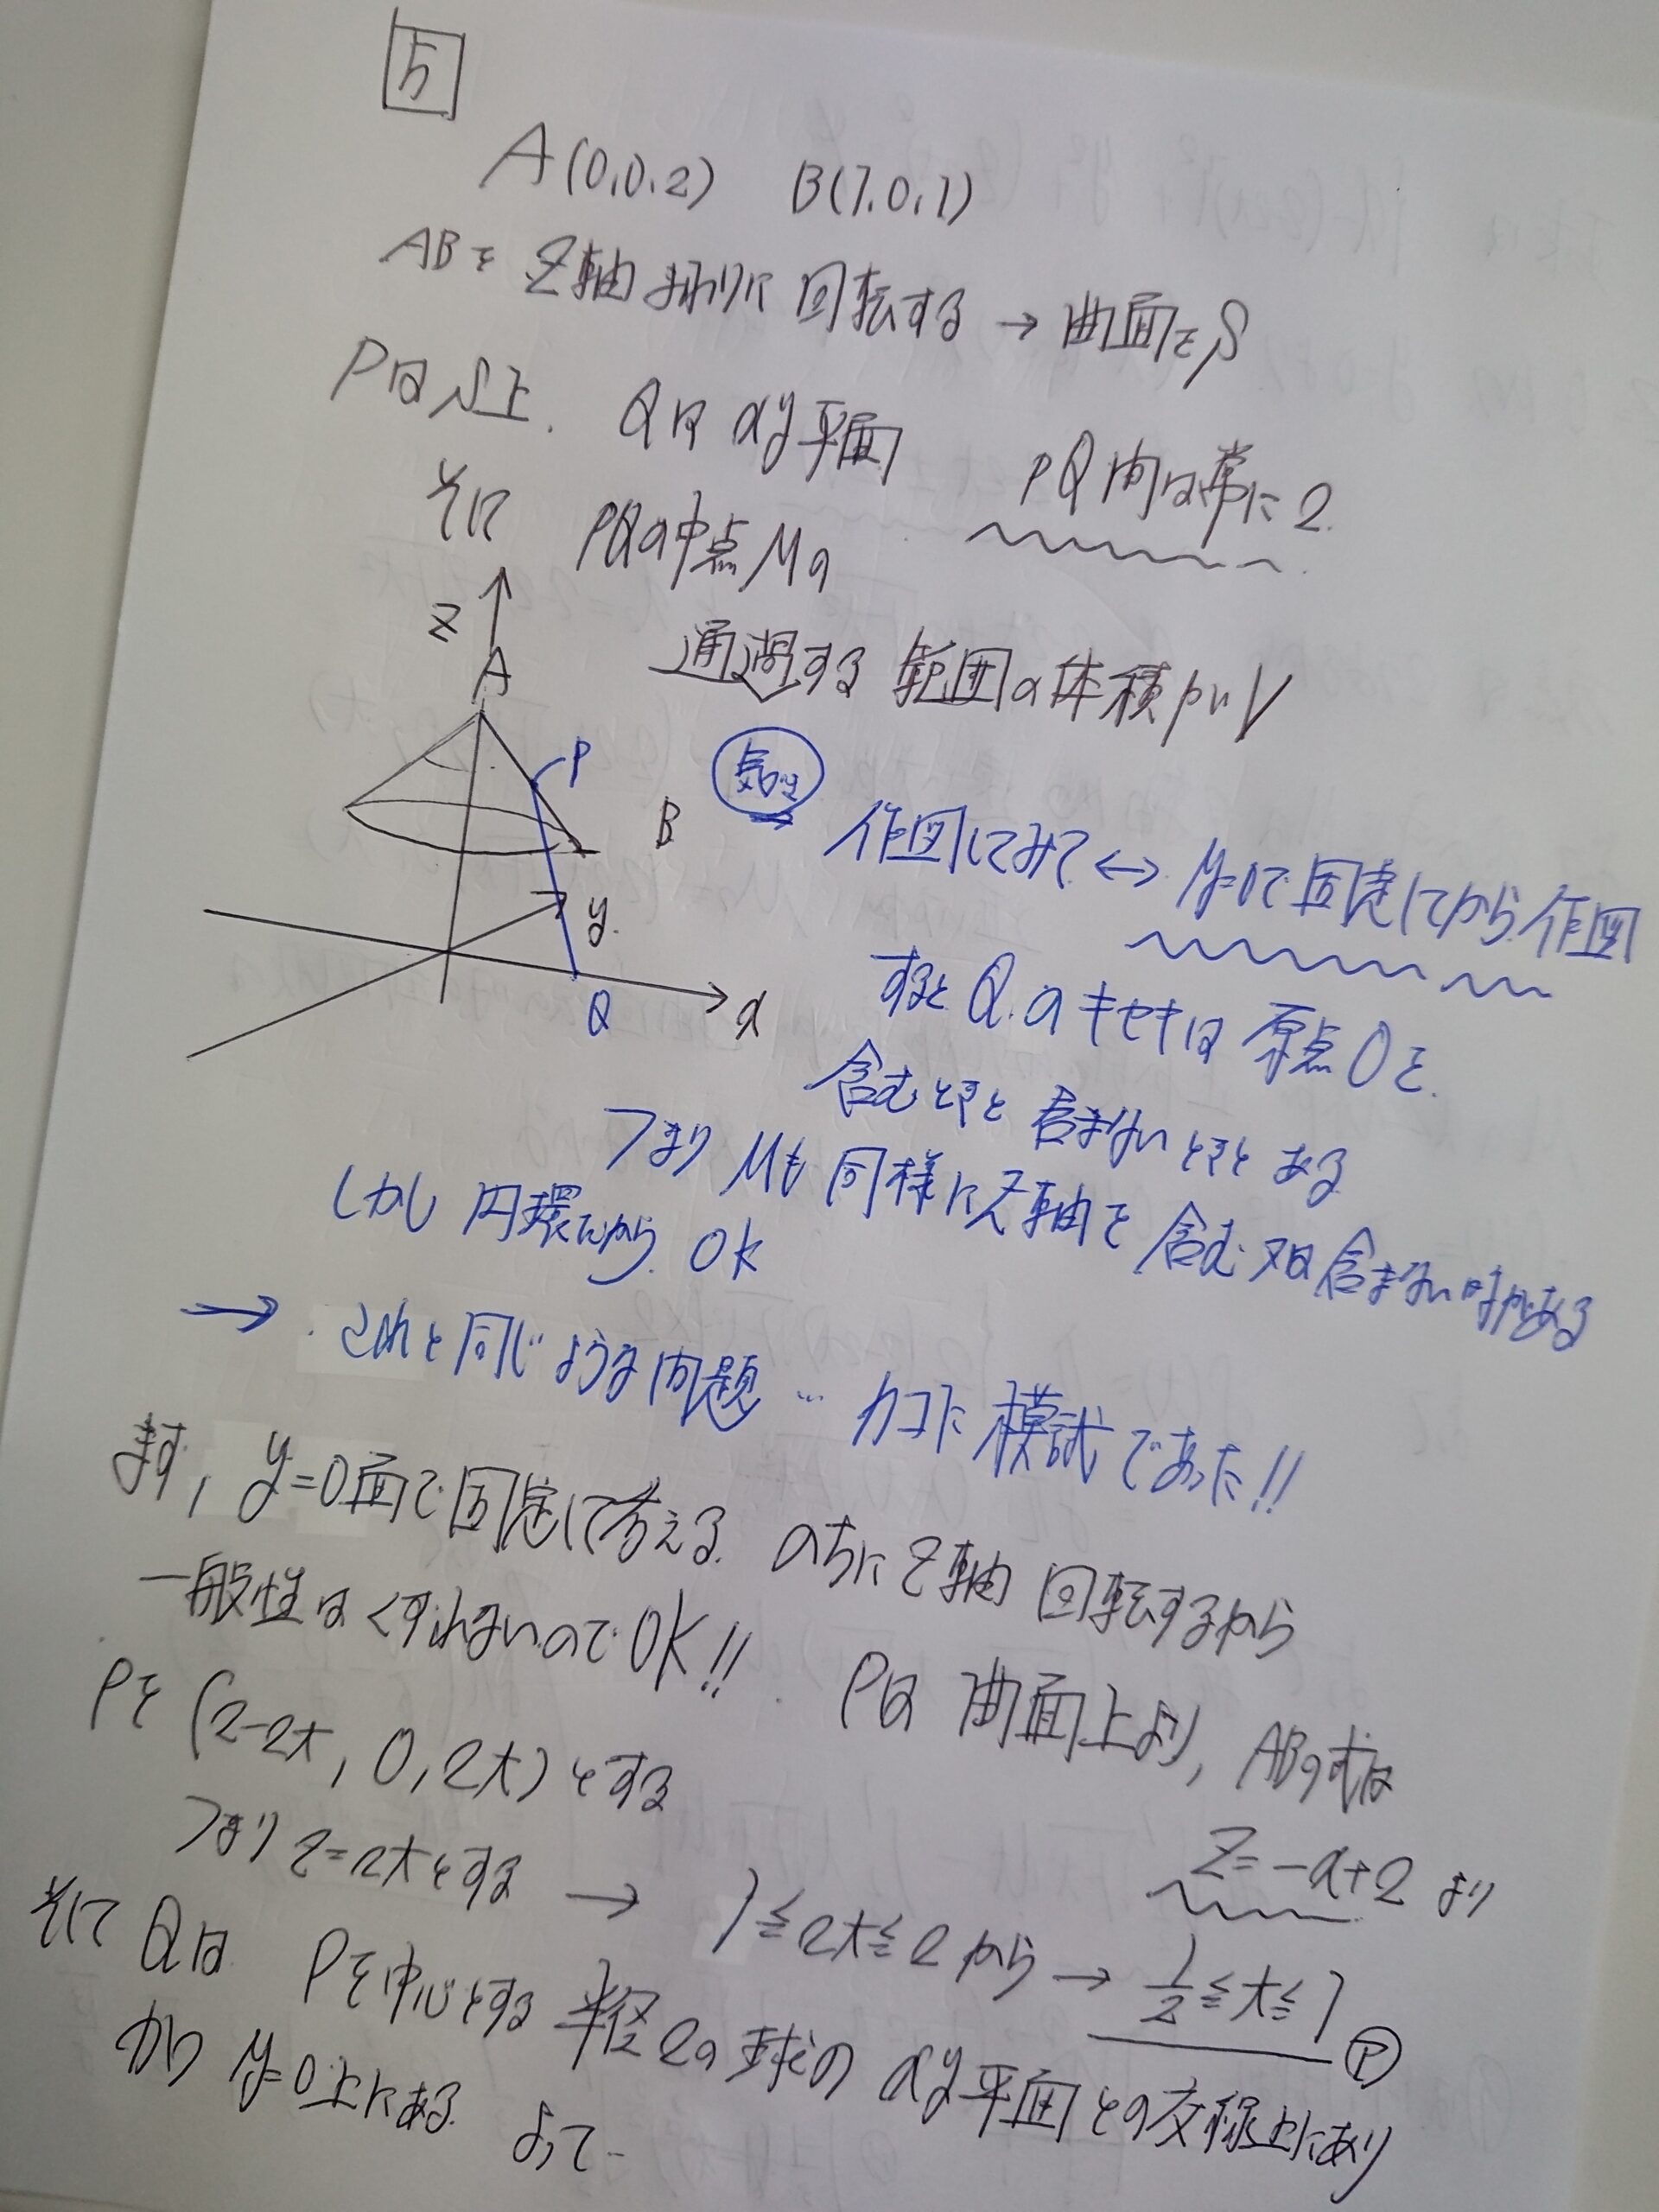 5
A(0,0,2) B(1,0,1)
ABを Z軸まわりに回転する → 曲面をS
PはS上. Qはxy平面 PQ間は常に2.
そして PQの中点Mの
通過する範囲の体積がV
Z
A
P
B
y
Q
x
気づき
作図してみて ↔ y=0で固定してから作図
すると Q.のキセキは原点Oを
含むときと含まないときとある
つまり Mも同様にZ軸を含む又は含まない時がある
しかし円環だから OK
→ これと同じような問題… カコに模試であった!!
まず, y=0面で固定して考える のちにZ軸回転するから
一般性はくずれないのでOK!! Pは曲面上より, ABの式は
Pを (2-2t, 0, 2t)とする
Z=-x+2 より
つまり z=2tとする → 1≦2t≦2から → 1/2≦t≦1 Ⓟ
そして Qは Pを中心とする半径2の球の xy平面との交線上にあり
かつ y=0上にある よって